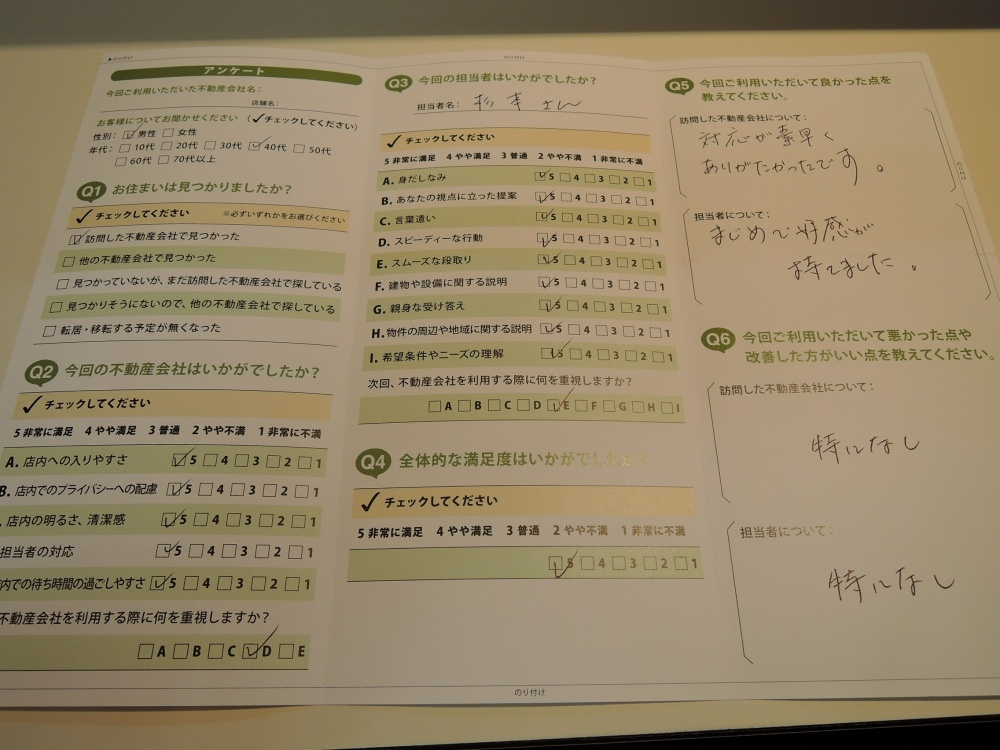 ▶のり付け
アンケート
今回ご利用いただいた不動産会社名：
店舗名：
お客様についてお聞かせください （✓チェックしてください）
性別： ☑男性 □女性
年代： □10代 □20代 □30代 ☑40代 □50代
□60代 □70代以上
Q1 お住まいは見つかりましたか？
✓チェックしてください ※必ずいずれかをお選びください
☑訪問した不動産会社で見つかった
□他の不動産会社で見つかった
□見つかっていないが、まだ訪問した不動産会社で探している
□見つかりそうにないので、他の不動産会社で探している
□転居・移転する予定が無くなった
Q2 今回の不動産会社はいかがでしたか？
✓チェックしてください
5 非常に満足 4 やや満足 3 普通 2 やや不満 1 非常に不満
A. 店内への入りやすさ ☑5 □4 □3 □2 □1
B. 店内でのプライバシーへの配慮 ☑5 □4 □3 □2 □1
店内の明るさ、清潔感 ☑5 □4 □3 □2 □1
担当者の対応 ☑5 □4 □3 □2 □1
内での待ち時間の過ごしやすさ ☑5 □4 □3 □2 □1
不動産会社を利用する際に何を重視しますか？
□A □B □C ☑D □E
のり付け
Q3 今回の担当者はいかがでしたか？
担当者名： 杉本さん
✓チェックしてください
5 非常に満足 4 やや満足 3 普通 2 やや不満 1 非常に不満
A. 身だしなみ ☑5 □4 □3 □2 □1
B. あなたの視点に立った提案 ☑5 □4 □3 □2 □1
C. 言葉遣い ☑5 □4 □3 □2 □1
D. スピーディーな行動 ☑5 □4 □3 □2 □1
E. スムーズな段取り ☑5 □4 □3 □2 □1
F. 建物や設備に関する説明 ☑5 □4 □3 □2 □1
G. 親身な受け答え ☑5 □4 □3 □2 □1
H. 物件の周辺や地域に関する説明 ☑5 □4 □3 □2 □1
I. 希望条件やニーズの理解 ☑5 □4 □3 □2 □1
次回、不動産会社を利用する際に何を重視しますか？
□A □B □C □D ☑E □F □G □H □I
Q4 全体的な満足度はいかがでしたか？
✓チェックしてください
5 非常に満足 4 やや満足 3 普通 2 やや不満 1 非常に不満
☑5 □4 □3 □2 □1
のり付け
Q5 今回ご利用いただいて良かった点を
教えてください。
訪問した不動産会社について：
対応が素早く
ありがたかったです。
担当者について：
まじめで好感が
持てました。
のり付け
Q6 今回ご利用いただいて悪かった点や
改善した方がいい点を教えてください。
訪問した不動産会社について：
特になし
担当者について：
特になし